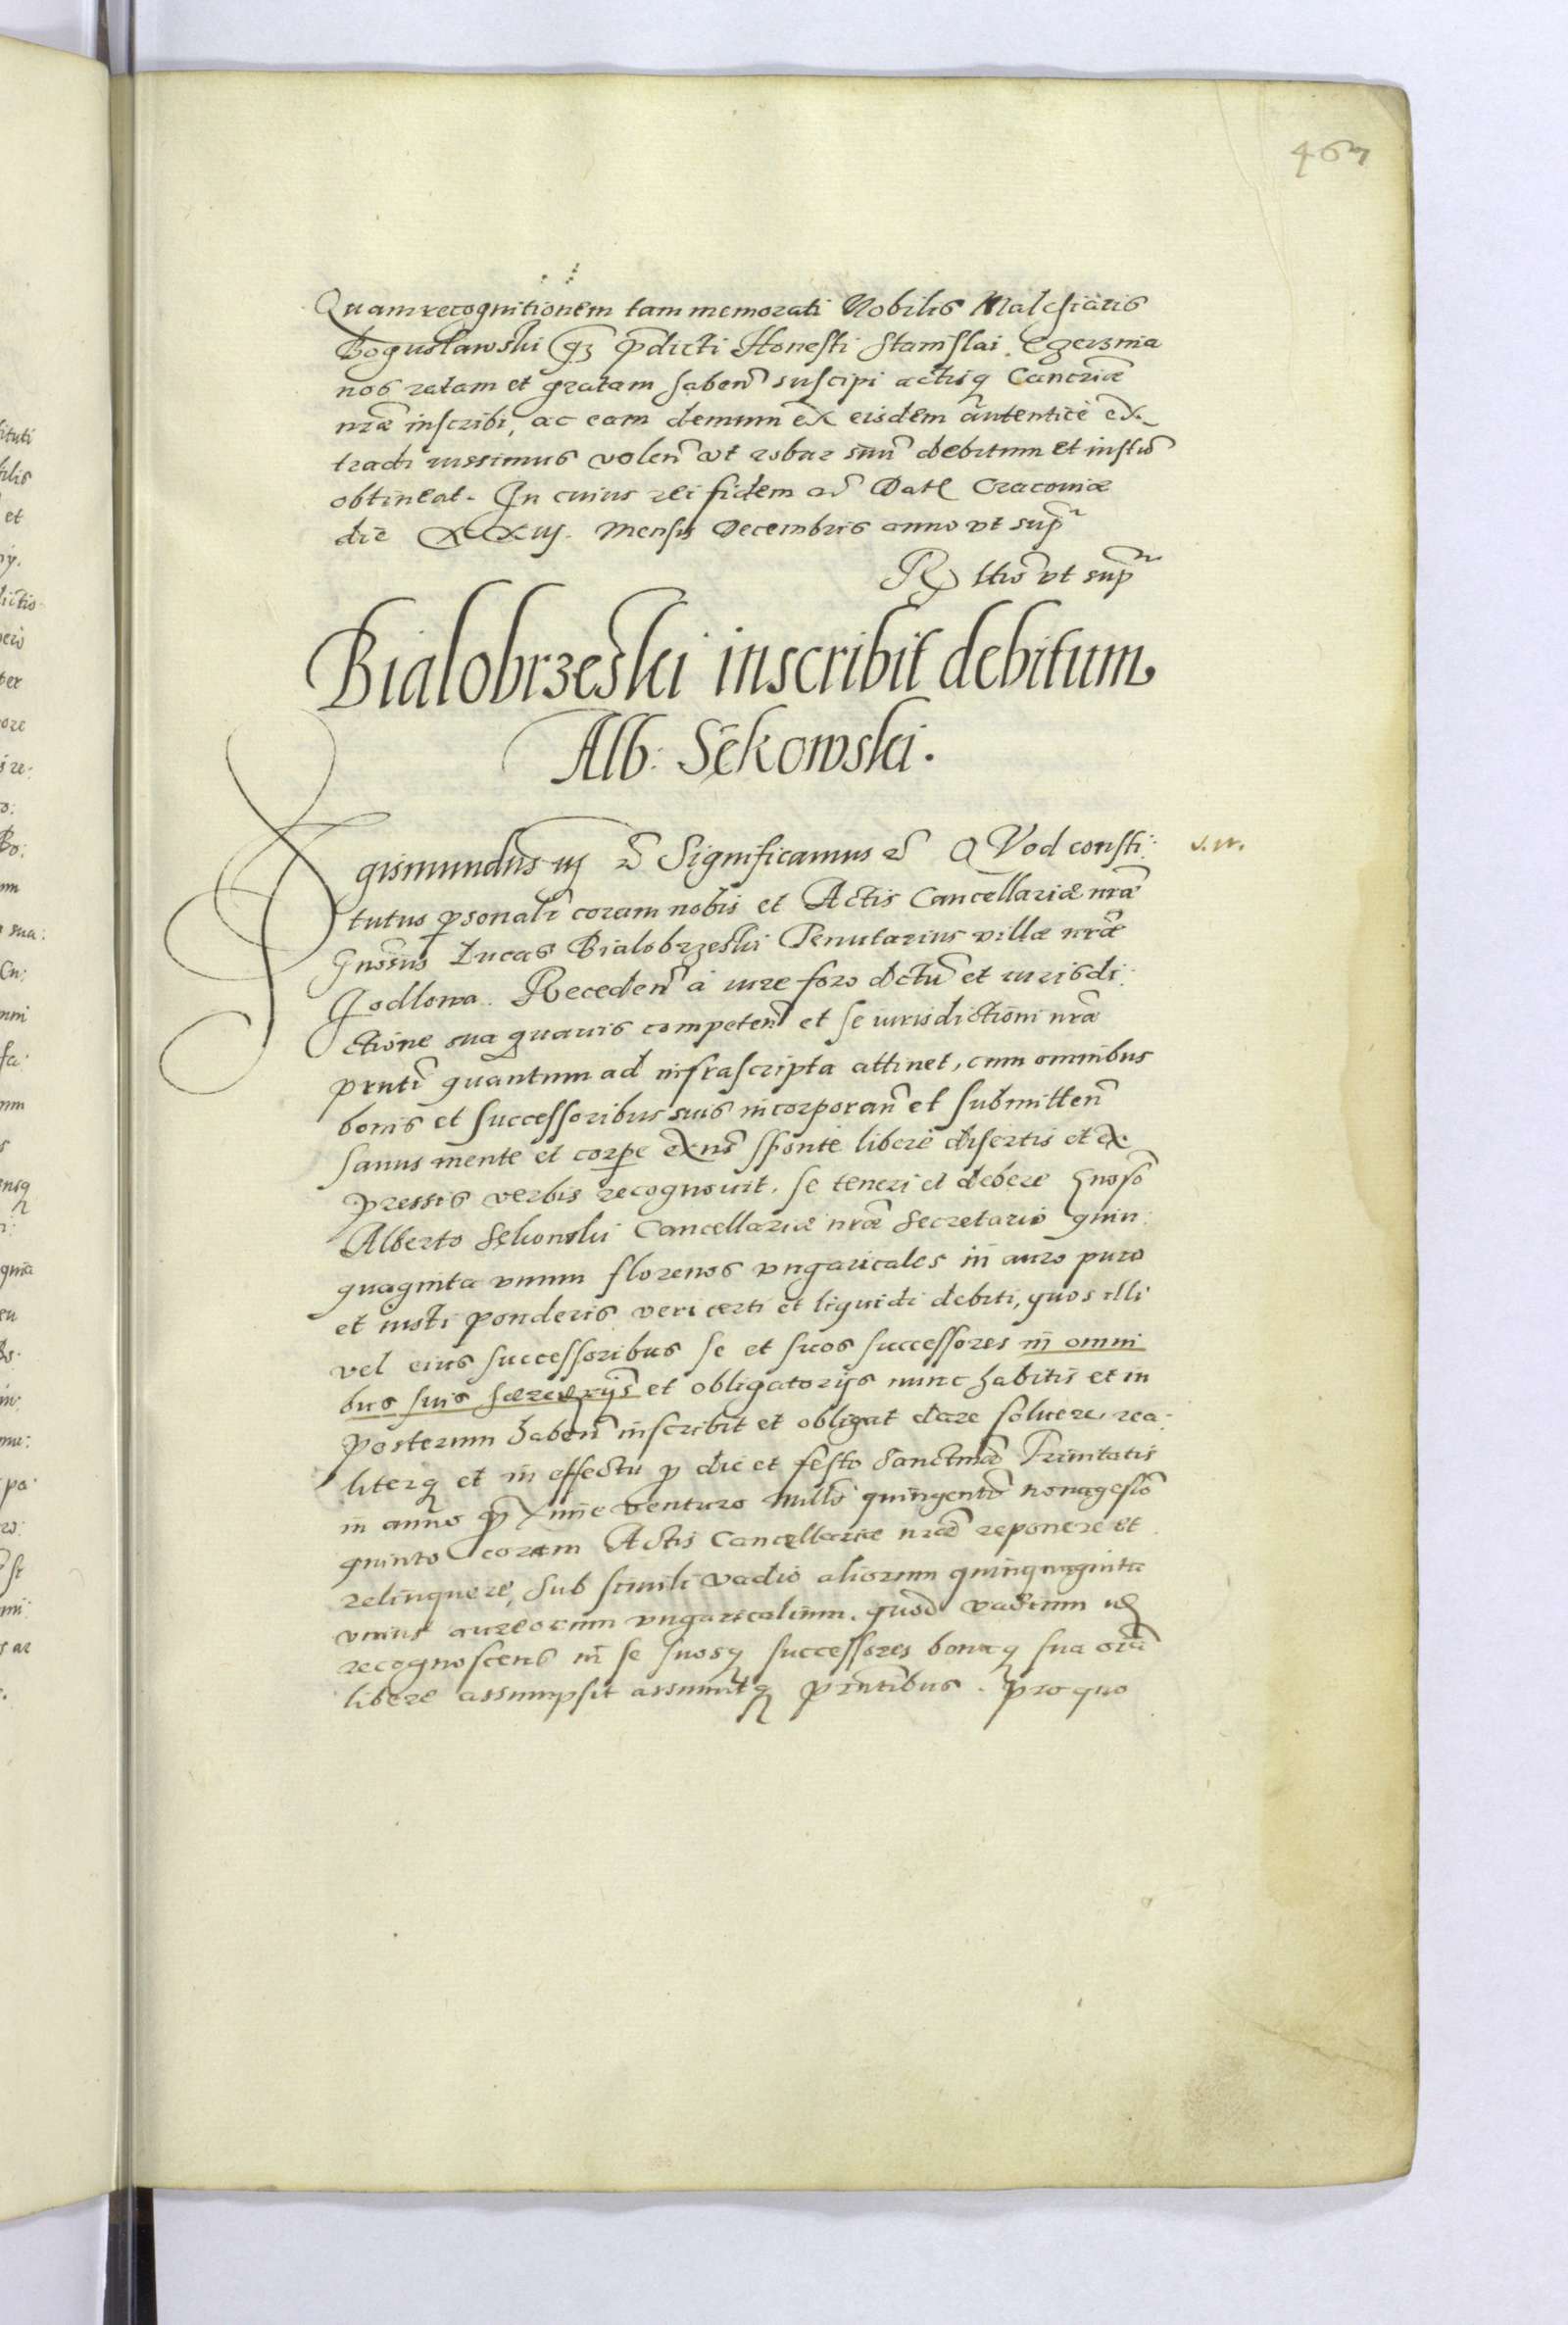 467
Quam recognitionem tam memorati Nobilis Malchiaris
Boguslawski q̃ȝ p̃dicti Honesti Stanislai
nos ratam et gratam haben̄ suscipi actisq̨ Cancriæ
nr̃æ inscribi, ac eam demum ex eisdem autenticè ex-
tradi iussimus volen̄ vt robur suū debitum et
obtineat. In cuius rei fidem Datt Cracoviæ
die XXIIJ. Mensis Decembris anno vt sup̃
R̨ ltio vt sup̃
Bialobrzeski inscribit debitum
Alb: Sękowski.
Sigismundus iij Significamus QVod consti: s.n.
tutus p̱sonalr̃ coram nobis et Actis Cancellariæ nr̃æ
Gnosus Lucas Bialobrzeski Tenutarius villæ nr̃æ
Jodlowa. Receden̄ à iure foro dctũ et iurisdi:
ctione sua quavis competen̄ et se iurisdictioni nr̃æ
prntĩ quantum ad infrascripta attinet, cum omnibus
bonis et successoribus suis incorporan̄ et submitten̄
sanus mente et corpe exñs sponte liberè disertis et ex
pressis verbis recognovit. se teneri et debere Gnoso
Alberto Sękowski Cancellariæ nr̃æ Secretario quin:
quaginta vnum florenos vngaricales in auro puro
et iusti ponderis veri certi et liquidi debiti, quos illi
vel eius successoribus se et suos successores in omni
bus suis hæredrijs et obligatorijs nunc habitis et in
posterum haben̄ inscribit et obligat dare solvere, rea:
literq̨ et in effectu p̱ die et festo Sanctmæ Trinitatis
in anno p̱xime venturo millō quingentō nonagesīō
quinto coram Actis Cancellariæ nr̃æ reponere et
relinquere, Sub simili vadio aliorum quinquaginta
vnius aureorum vngaricalium. quod vadium
recognoscens in se suosq̨ successores bonaq̨ sua oĩa
libere assumpsit assumitq̨ prñtibus. Pro quo